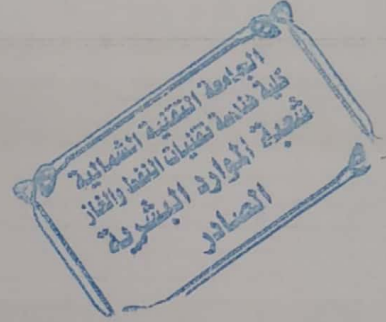 الجامعة التقنية الشمالية
كلية هندسة تقنيات النفط والغاز
شعبة الموارد البشرية
الصادر